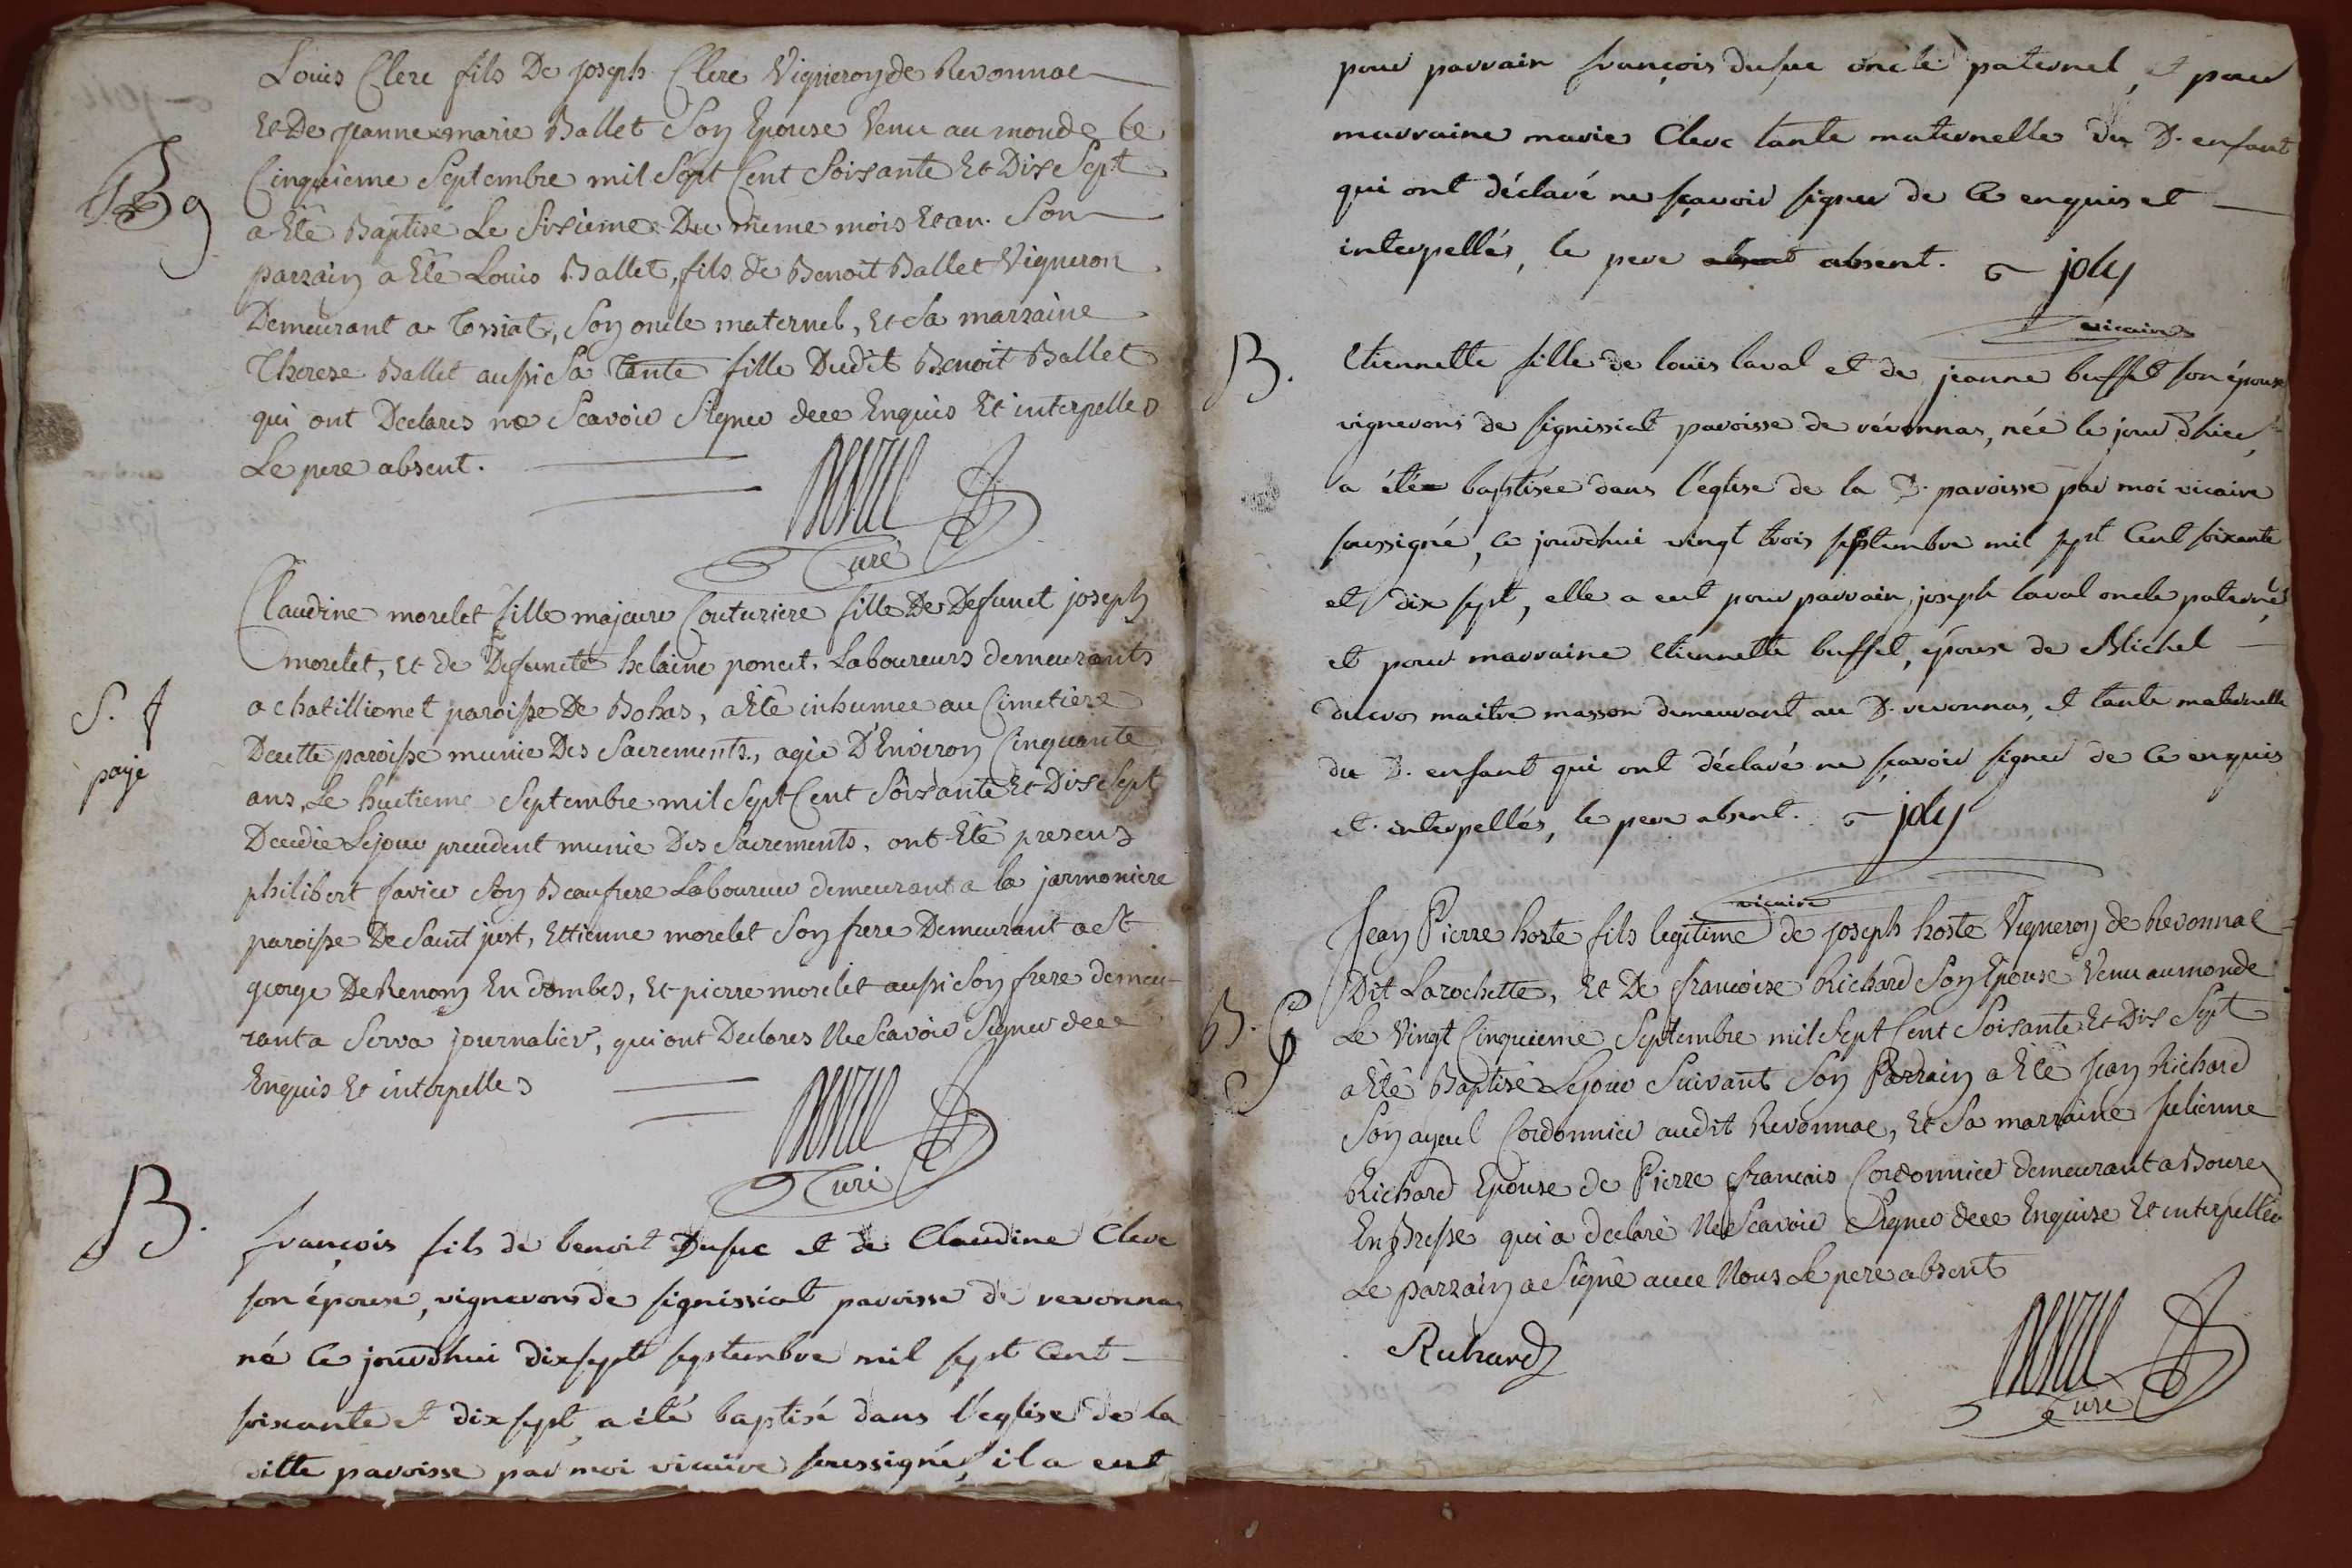 Louis Clerc fils De joseph Clerc Vigneron de Revonnac
Et De jeanne marie Ballet Son Epouse Venu au monde le
Cinquieme Septembre mil Sept Cent Soisante Et Dixe Sept
a Eté Baptisé Le Sixieme Du même mois Et an. Son
B
parrain a Eté Louis Ballet, fils de Benoit Ballet Vigneron
Demeurant a Tossiat, Son oncle maternel, Et Sa marraine
Therese Ballet aussi Sa Tante fille Dudit Benoit Ballet
qui ont Declarés ne Scavoir Signer dece Enquis Et interpellés
Le pere absent.
Curé
Claudine morelet fille majeure Couturiere fille De Defunct joseph
morelet, Et de Defuncte helaine poncet, Laboureurs demeurants
S. f
a chatillionet paroisse De Bohas, a Eté inhumee au Cimetiere
paýé
Decette paroisse munie Des Sacrements, agée D'Environ Cinquante
ans, Le huitieme Septembre mil Sept Cent Soisante Et Dixe Sept
Decedée Lejour precedent munie Des Sacrements, ont Eté presens
philibert favier Son Beaufrere Laboureur demeurant a la jarmoniere
paroisse De Saint just, Ettienne morelet Son frere Demeurant a St
george De Renom En dombes, Et pierre morelet aussi Son frere demeu-
rant a Serva journalier, qui ont Declares Ne Scavoir Signer dece
Enquis Et interpellés
Curé
B.
françois fils de benoit Dufuc et de Claudine Clerc
son épouse, vignerons de signissiat paroisse de revonnas
né ce jourdhui dix sept septembre mil sept Cent
soixante et dix sept, a été baptisé dans l'eglise de la
ditte paroisse par moi vicaire soussigné, il a eut
pour parrain françois dufuc oncle paternel, et pour
marraine marie Clerc tante maternelle du D. enfant
qui ont déclaré ne sçavoir signer de Ce enquis et
interpellés, le pere absent. joly
vicaire
B.
Etiennette fille de louis laval et de jeanne buffet son épouse
vignerons de signissiat paroisse de révonnas, née le jour d'hier,
a été baptisée dans l'eglise de la D. paroisse par moi vicaire
soussigné, ce jourdhui vingt trois septembre mil sept Cent soixante
et dix sept, elle a eut pour parrain joseph laval oncle paternel,
et pour marraine etiennette buffet, épouse de Michel
ducros maitre masson demeurant au D. revonnas, et tante maternelle
du D. enfant qui ont déclaré ne sçavoir signer de Ce enquis
et interpellés, le pere absent. joly
vicaire
Jean Pierre hoste fils legitime de joseph hoste Vigneron de Revonnac
Dit Larochette, Et De francoise Richard Son Epouse Venu au monde
B.
Le Vingt Cinquieme Septembre mil Sept Cent Soisante Et Dix Sept
a Eté Baptisé Lejour Suivant Son Parrain a Eté Jean Richard
Son ayeul Cordonnier audit Revonnac, Et Sa marraine Julienne
Richard Epouse de Pierre francais Cordonnier demeurant a Bourg
En Bresse qui a declaré Ne Scavoir Signer dece Enquise Et interpellée
Le parrain a Signé avec Nous Le pere absent
Richard
Curé